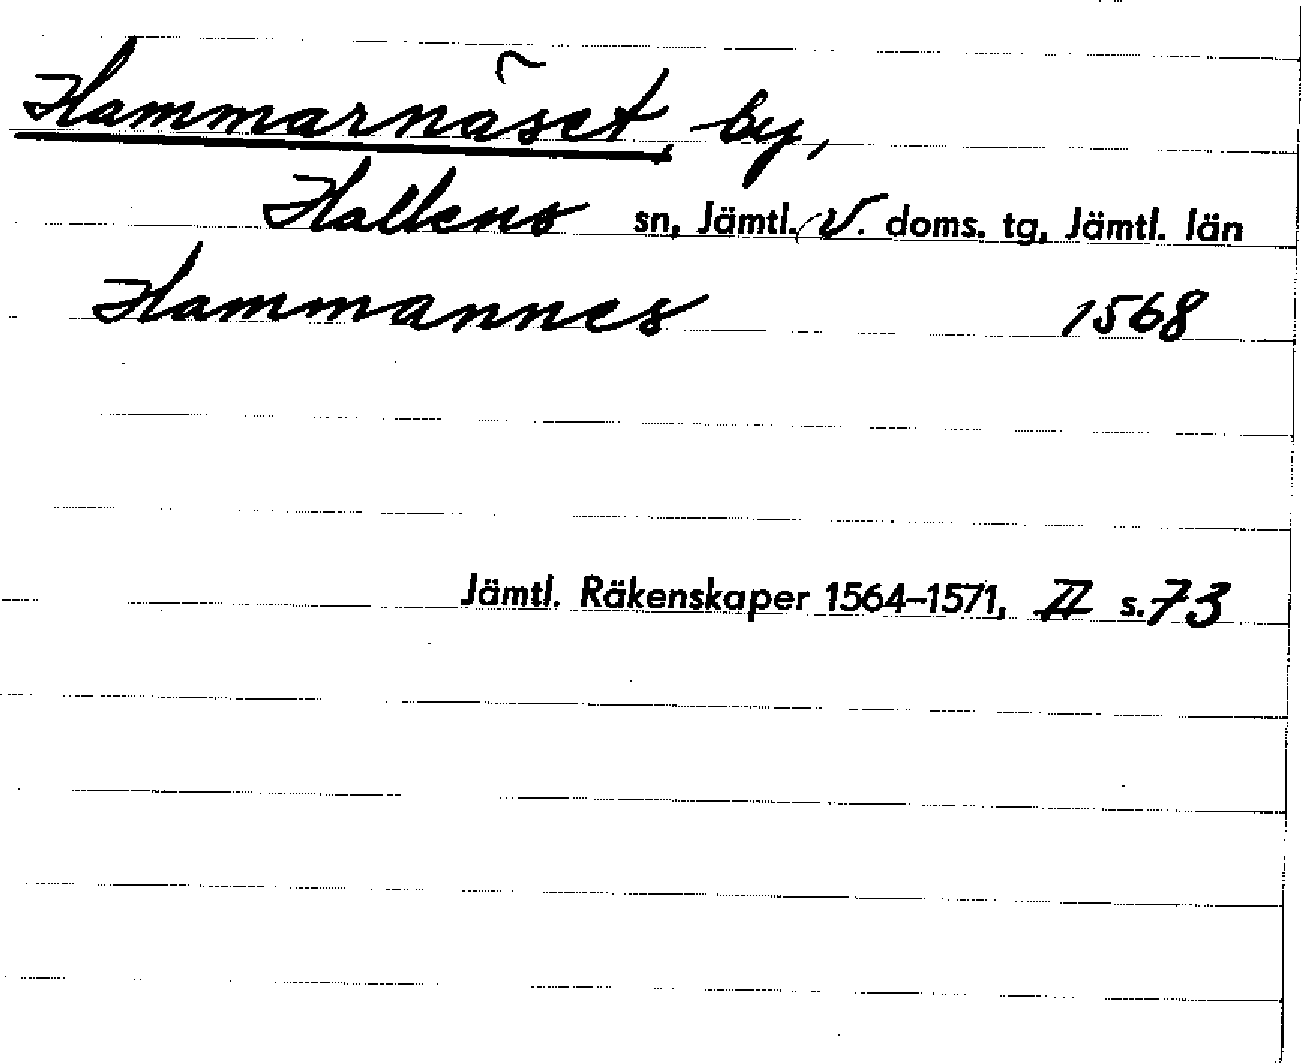 Hammarnäset, by,
Hallens sn, Jämtl. V. doms. tg, Jämtl. län
Hammannes 1568
Jämtl. Räkenskaper 1564–1571, II s. 73